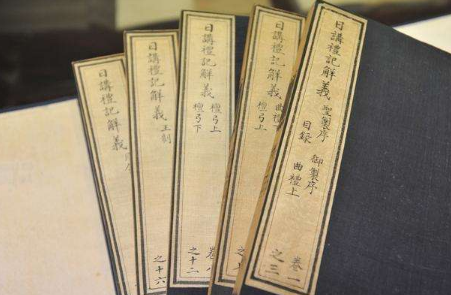 日講禮記解義
日講禮記解義 王制
之十六
日講禮記解義 檀弓上
檀弓下
之十二
日講禮記解義 曲禮下
檀弓上
日講禮記解義 聖製序 御製序
目錄 曲禮上
卷一
之三